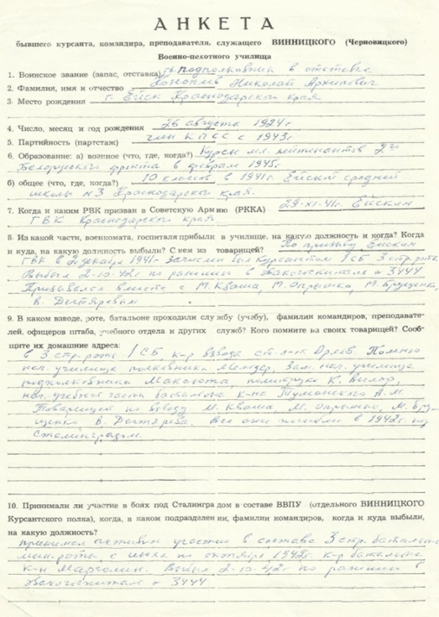 АНКЕТА
бывшего курсанта, командира, преподавателя, служащего ВИННИЦКОГО (Черновицкого)
Военно-пехотного училища
1. Воинское звание (запас, отставка) подполковник в отставке
2. Фамилия, имя и отчество Николай Архипович
3. Место рождения г. Ейск Краснодарского края
4. Число, месяц и год рождения 26 августа 1924г
5. Партийность (партстаж) член КПСС с 1943г.
6. Образование: а) военное (что, где, когда?) Курсы мл. лейтенантов 2го
Белорусского фронта в феврале 1945г.
б) общее (что, где, когда?) 10 классов в 1941г. Ейской средней
школы №3 Краснодарского края.
7. Когда и каким РВК призван в Советскую Армию (РККА) 29-XI-41г. Ейским
ГВК Краснодарского края
8. Из какой части, военкомата, госпиталя прибыли в училище, на какую должность и когда? Когда
и куда, на какую должность выбыли? С кем из товарищей? По призыву Ейским
ГВК в декабре 1941г. зачислен был курсантом 1СБ 3 стр. роты
Выбыл 2-10-42г по ранению в эвакогоспиталь № 3444
Призывался вместе с М. Кваша, М. Опрышко, М. Бруценко,
В. Дегтяревым
9. В каком взводе, роте, батальоне проходили службу (учебу), фамилии командиров, преподавате-
лей, офицеров штаба, учебного отдела и других служб? Кого помните из своих товарищей? Сооб-
щите их домашние адреса:
в 3 стр. роте 1СБ к-р взвода ст. л-т Орлов. Помню
нач. училища полковника зам. нач. училища
подполковника политрука К.
нач. учебной части батальона к-на Туманского А.М.
Товарищей по взводу М. Кваша М. Опрышко, М. Бру-
ценко В. Дегтярева. Все они погибли в 1942г. под
Сталинградом.
10. Принимали ли участие в боях под Сталинградом в составе ВВПУ (отдельного ВИННИЦКОГО
Курсантского полка), когда, в каком подразделении, фамилии командиров, когда и куда выбыли,
на какую должность?
принимал активное участие в составе 3 стр. батальона
мин. роты с июля по октябрь 1942г. к-р батальона
к-н Марголин. Выбыл 2-10-42г по ранению в
эвакогоспиталь № 3444